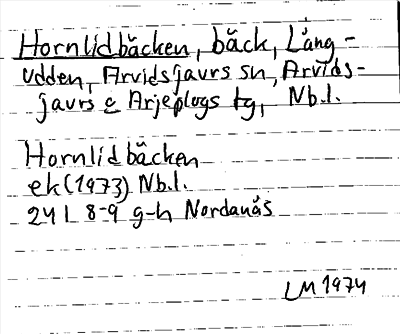 Hornlidbäcken, bäck, Lång-
udden, Arvidsjaurs sn, Arvids-
jaurs o Arjeplogs tg, Nb.l.
Hornlidbäcken
ek (1973) Nb.l.
24 I 8-9 g-h Nordanås
LM 1974